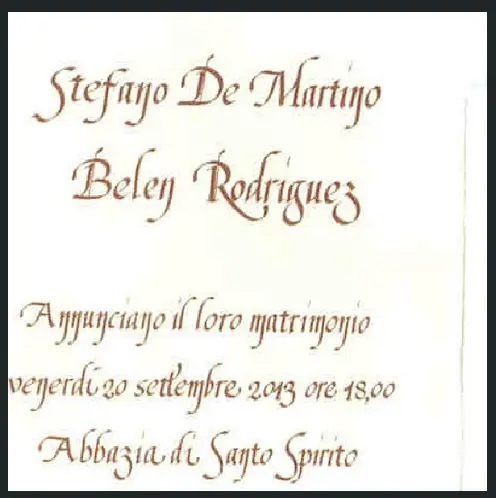 Stefano De Martino
Belen Rodriguez
Annunciano il loro matrimonio
venerdi 20 settembre 2013 ore 18,00
Abbazia di Santo Spirito